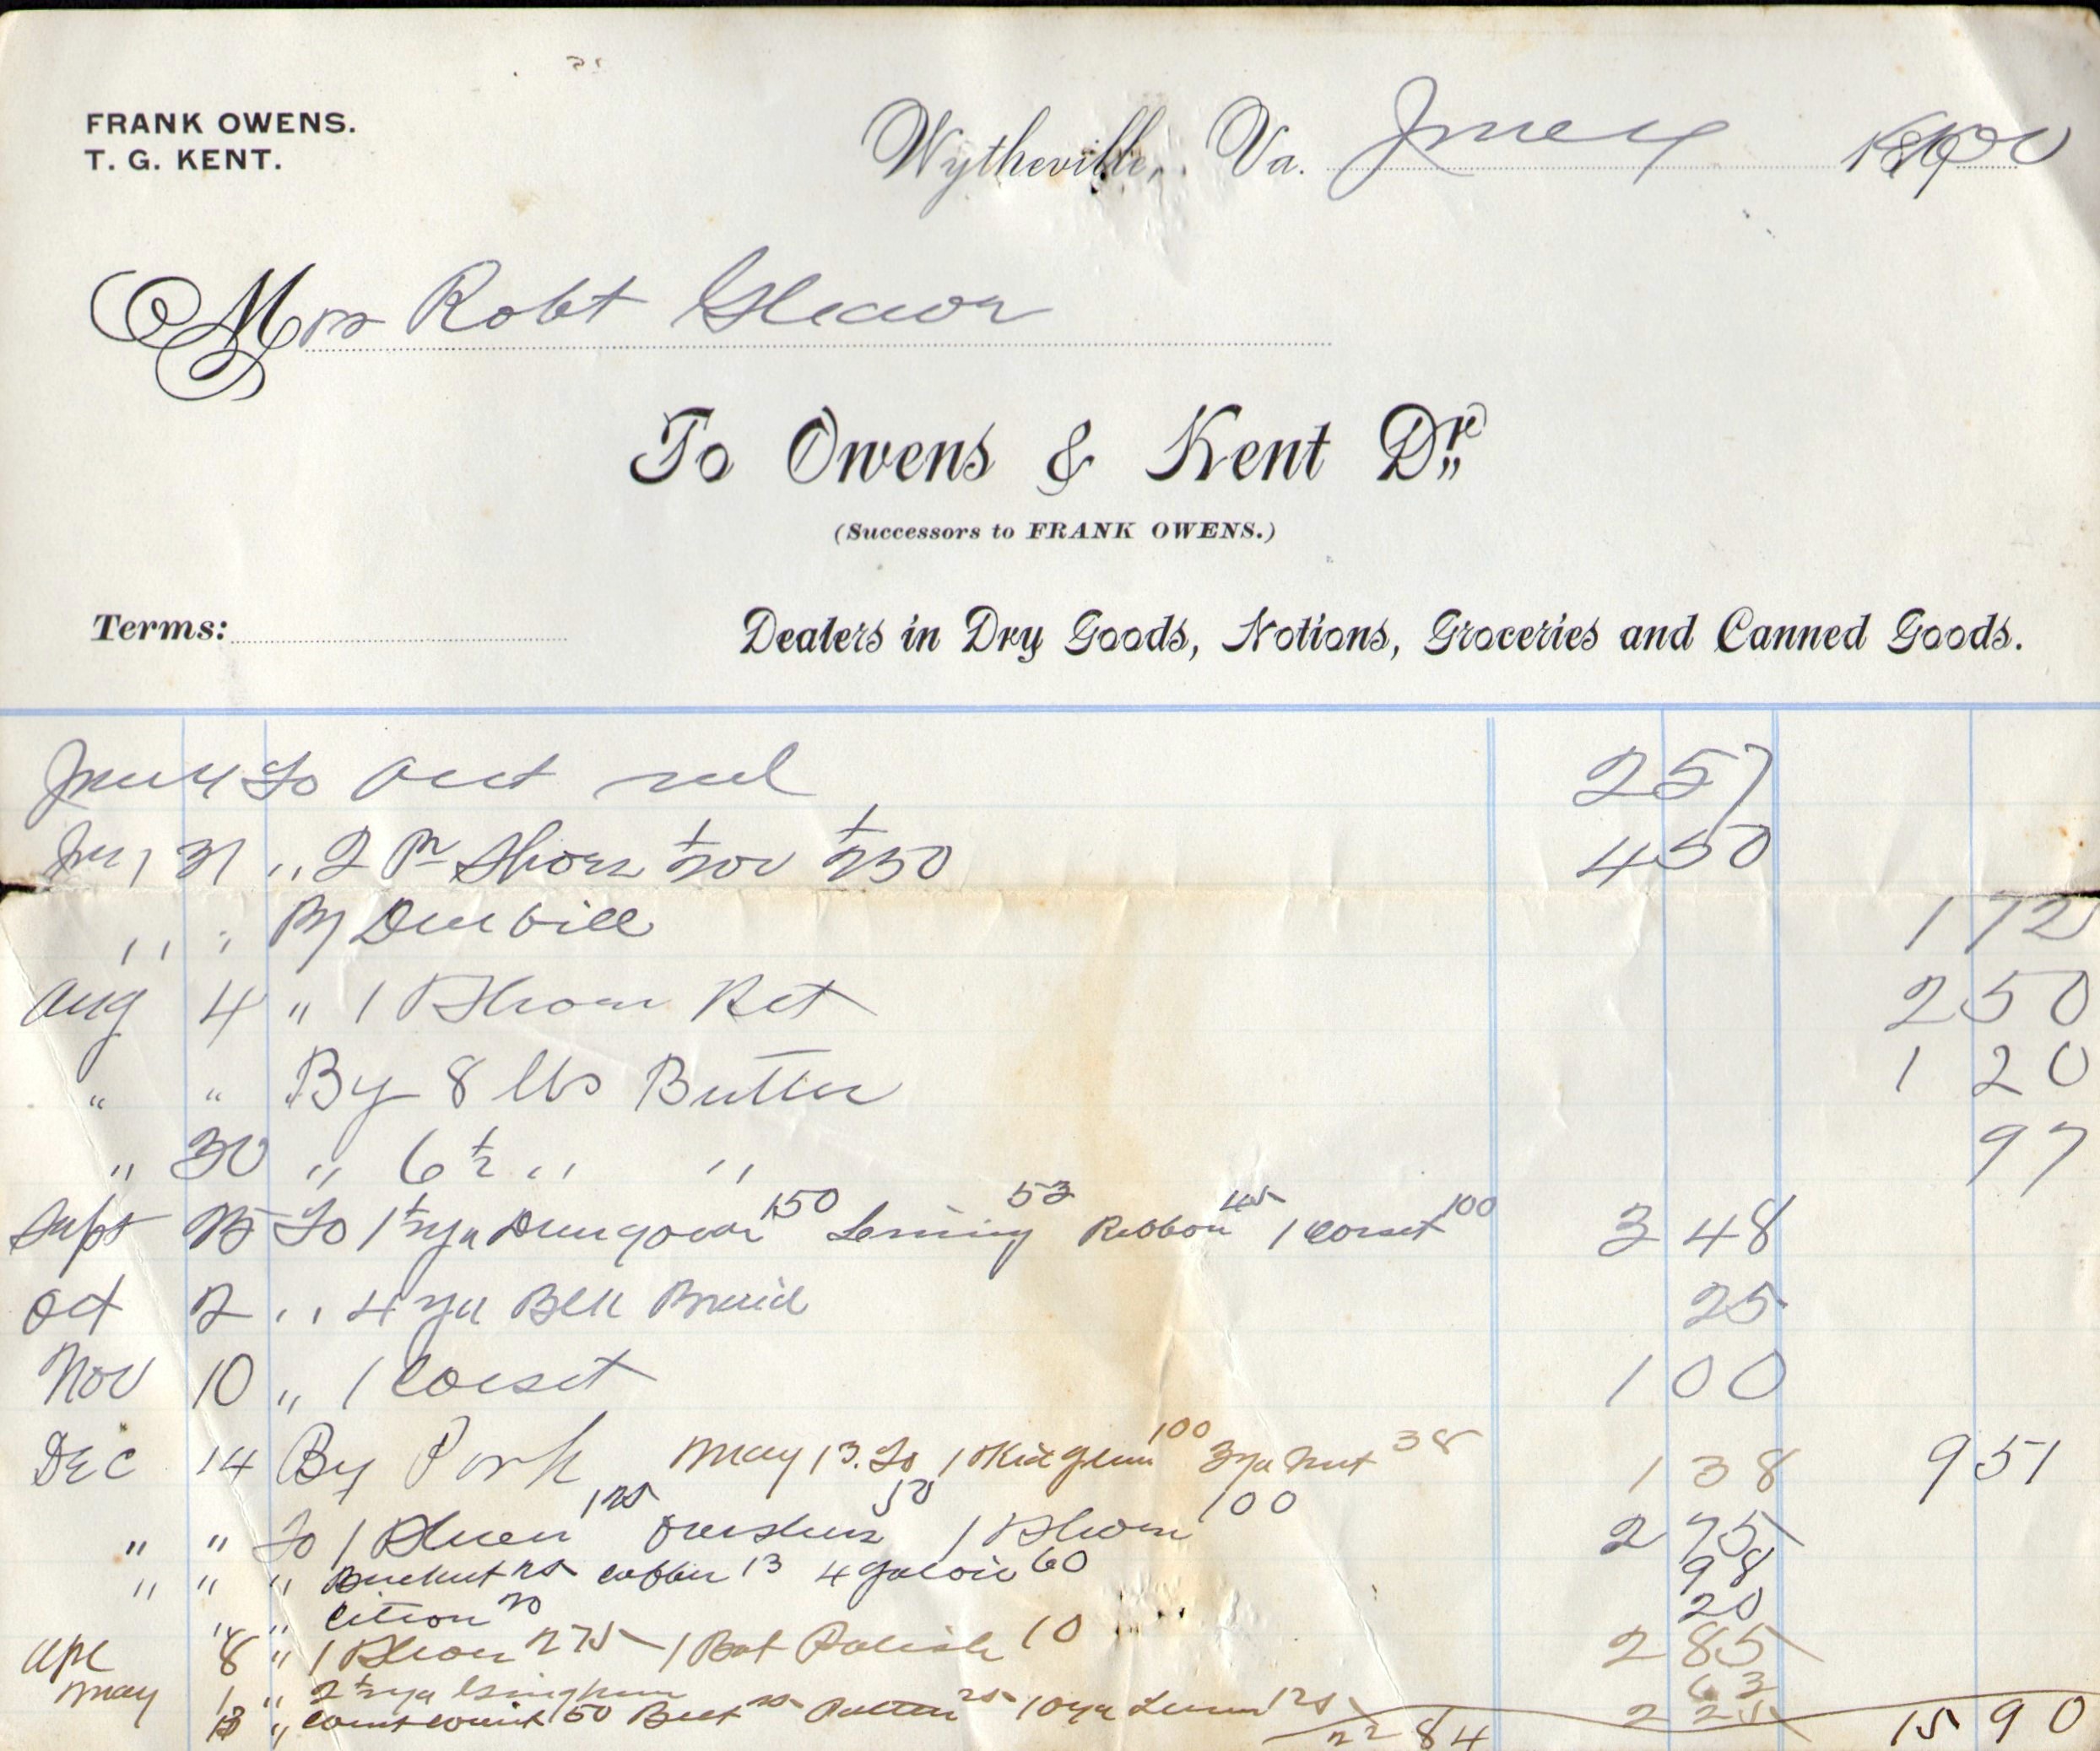 FRANK OWENS.
T. G. KENT.
Wytheville, Va. June 4 1900
Mrs Robt
To Owens & Kent Dr.
(Successors to FRANK OWENS.)
Terms:
Dealers in Dry Goods, Notions, Groceries and Canned Goods.
To acct 257
31 " 2 Pr Shoes 200 250 450
" " By Due bill 172
Aug 4 " 1 Shoes Ret 250
" " By 8 lbs Butter 120
" 30 " 6 1/2 " " 97
Sept 15 To 1 150 Lining 53 Ribbon 45 1 Corset 100 3 48
Oct 2 " 4 yd Blk Braid 25
Nov 10 " 1 Corset 100
Dec 14 By Pork May 13. To 1 Kid 100 3 yd 38 1 38 9 51
" " To 1 Shoes 125 Overshoes 50 1 Shoes 100 2 75
" " " 25 13 4 gal oil 60 98
" " Citron 20 20
Apl 8 " 1 Shoes 275 1 Bot Polish 10 2 85
May 1 " 2 1/2 yd Gingham 63
13 " 50 Belt 25 25 10 yd 125 2 25
22 84 15 90